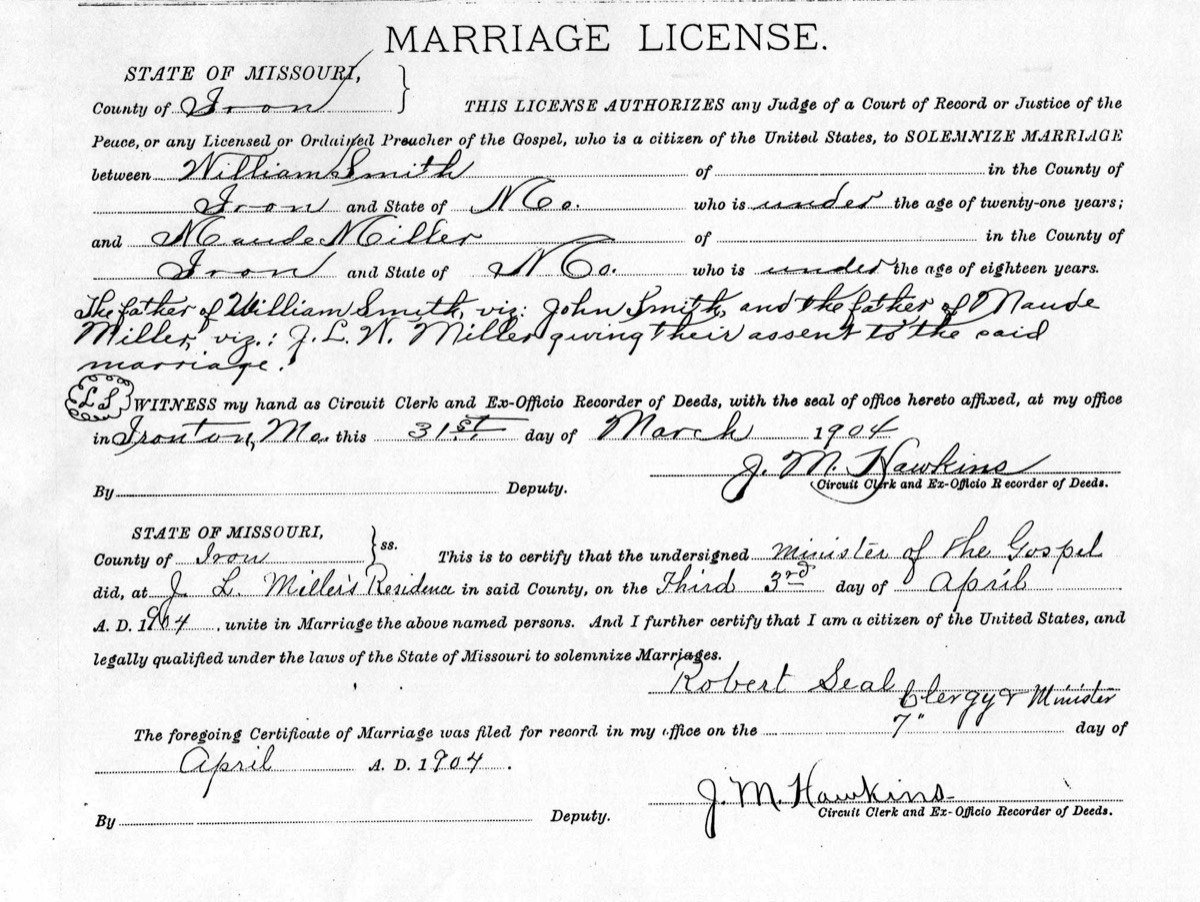 MARRIAGE LICENSE.
STATE OF MISSOURI,
County of Iron } THIS LICENSE AUTHORIZES any Judge of a Court of Record or Justice of the
Peace, or any Licensed or Ordained Preacher of the Gospel, who is a citizen of the United States, to SOLEMNIZE MARRIAGE
between William Smith of in the County of
Iron and State of Mo. who is under the age of twenty-one years;
and Maude Miller of in the County of
Iron and State of Mo. who is under the age of eighteen years.
The father of William Smith, viz: John Smith, and the father of Maude
Miller, viz.: J. L. W. Miller giving their assent to the said
marriage.
L S WITNESS my hand as Circuit Clerk and Ex-Officio Recorder of Deeds, with the seal of office hereto affixed, at my office
in Ironton, Mo. this 31st day of March 1904
J. M. Hawkins
By Deputy. Circuit Clerk and Ex-Officio Recorder of Deeds.
STATE OF MISSOURI,
County of Iron } ss. This is to certify that the undersigned Minister of the Gospel
did, at J. L. Miller's Residence in said County, on the Third 3rd day of April
A. D. 1904, unite in Marriage the above named persons. And I further certify that I am a citizen of the United States, and
legally qualified under the laws of the State of Missouri to solemnize Marriages.
Robert Seal Clergy & Minister
The foregoing Certificate of Marriage was filed for record in my office on the 7" day of
April A. D. 1904.
J. M. Hawkins
By Deputy. Circuit Clerk and Ex-Officio Recorder of Deeds.